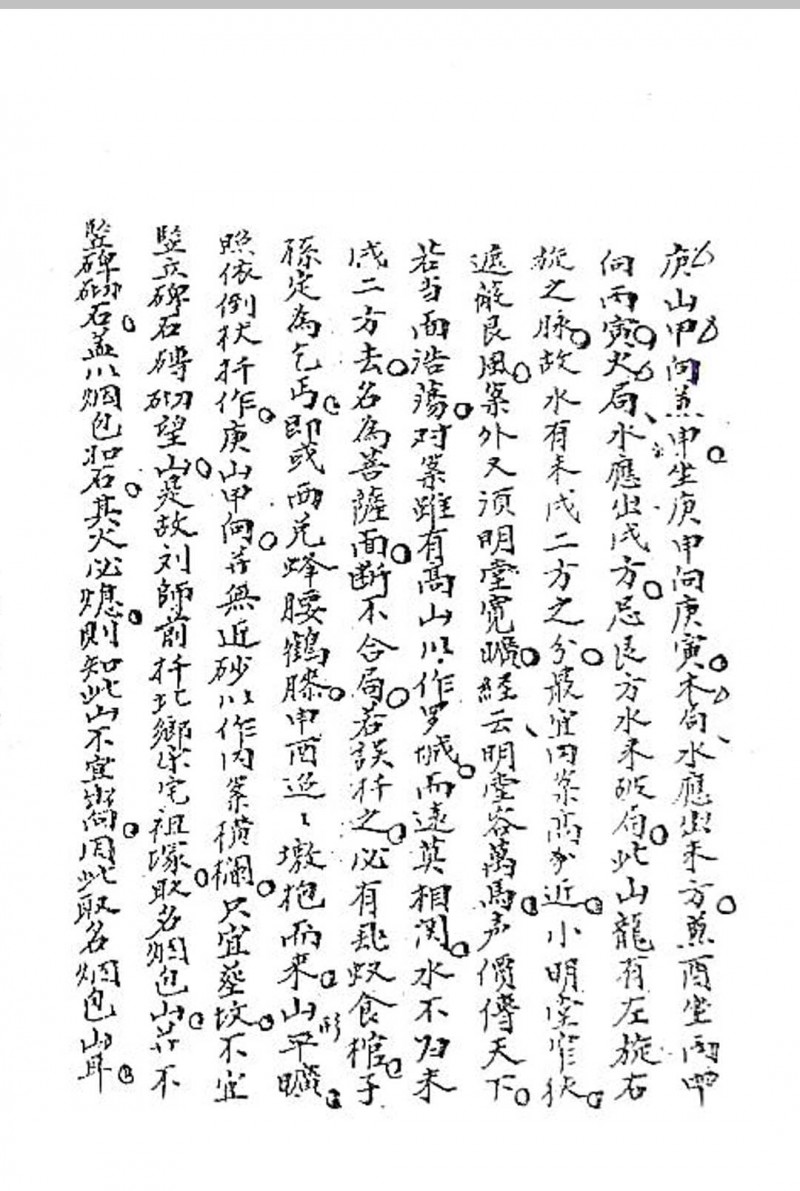 庚山甲向兼申坐庚申向庚寅木局水應出未方兼酉坐丙申
向丙寅火局水應出戌方忌艮方水來破局此山龍有左旋右
旋之脉故水有未戌二方之分最宜内案高分近小明堂窄狹
遮蔽艮風案外又須明堂寬曠経云明堂容萬馬声價傳天下
若当面浩蕩对案雖有高山以作罗城而遠莫相関水不归未
戌二方去名為菩薩面断不合局若誤扦之必有乱蚁食棺子
孫定為乞丐即或西兑蜂腰鶴膝申酉迢〻墩抱而來山形平曠
照依倒杖扦作庚山甲向並無近砂以作内案横欄只宜塟坟不宜
竪立碑石磚砌望山是故刘師前扦北鄉宋宅祖塚取名烟包山並不
竪碑砌石盖以烟包如石其火必熄則知此山不宜當向用此取名烟包山耳